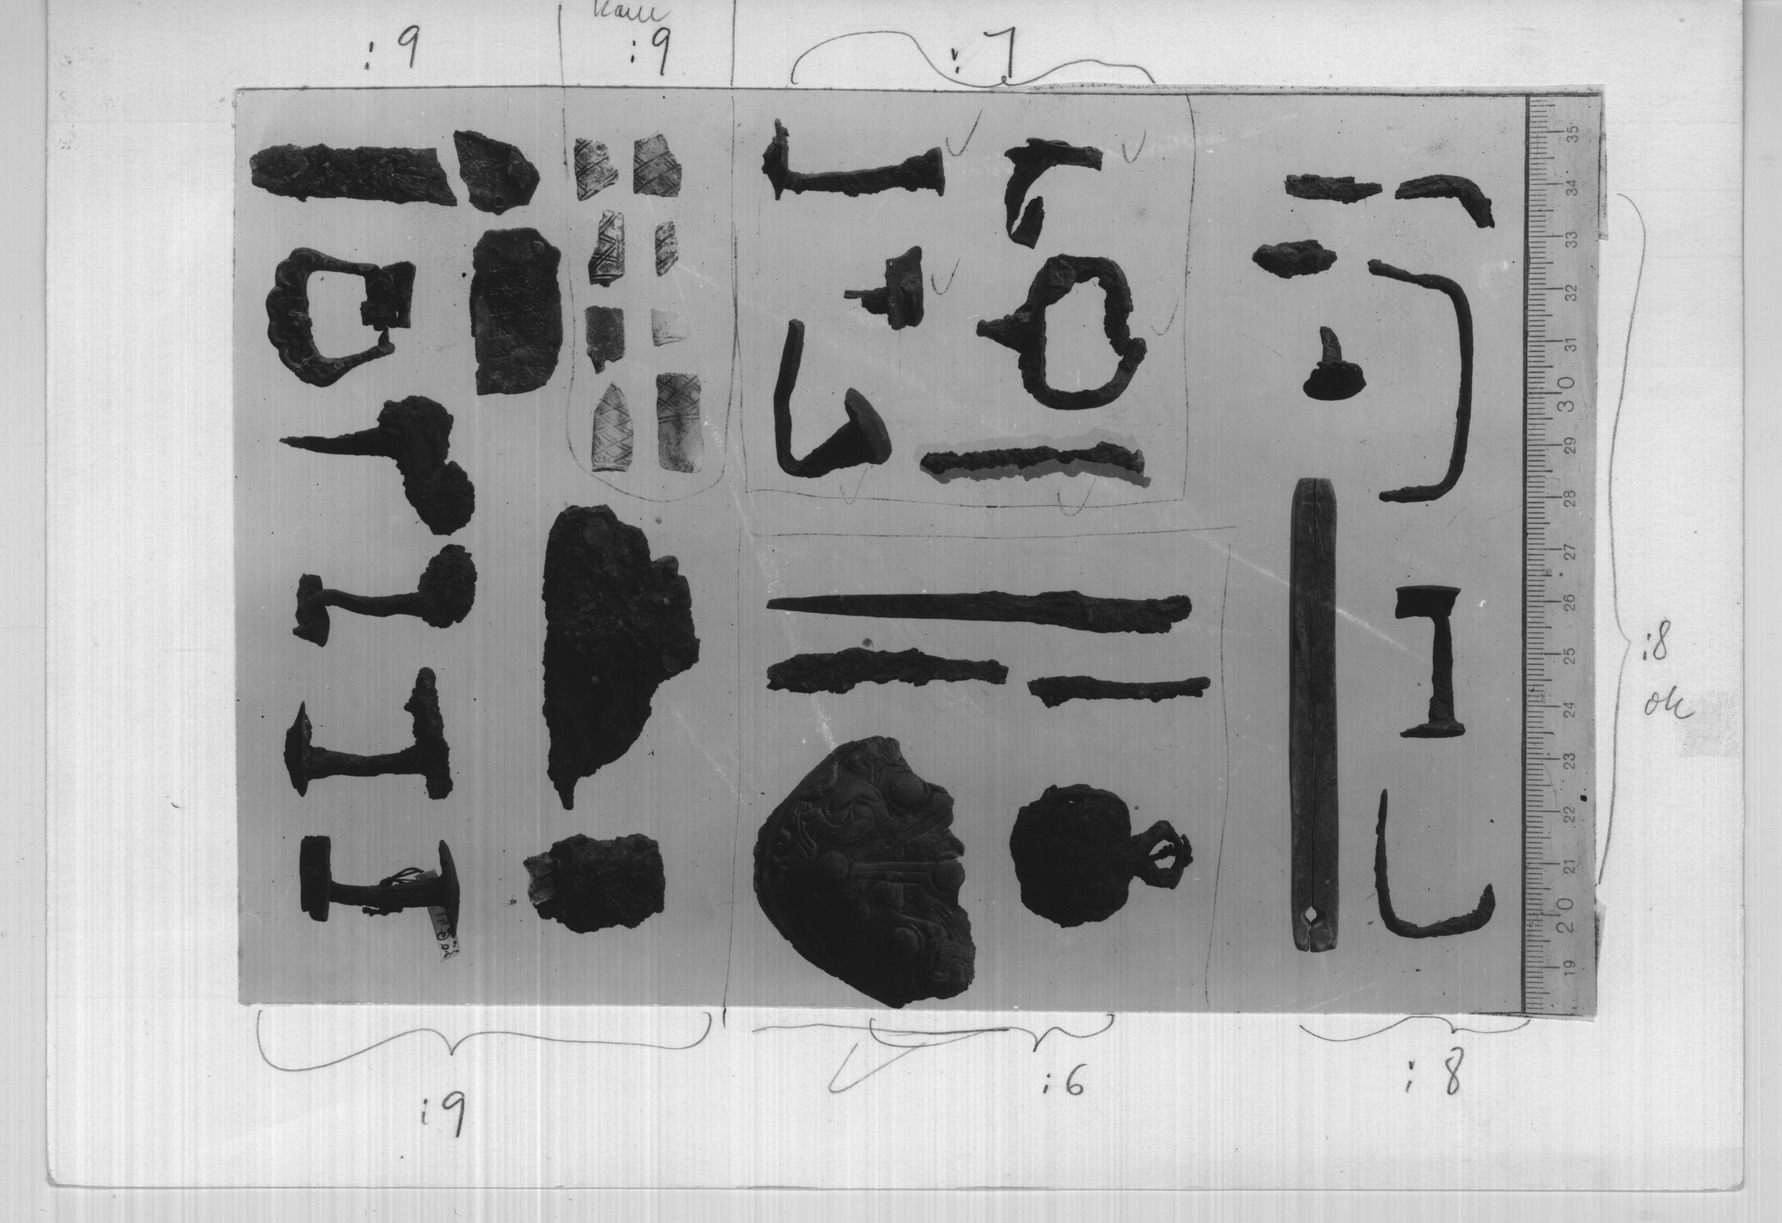 :9
:9
:7
35
34
33
32
31
30
29
28
27
26
25
24
23
22
21
20
19
:8
ok
:9
:6
:8